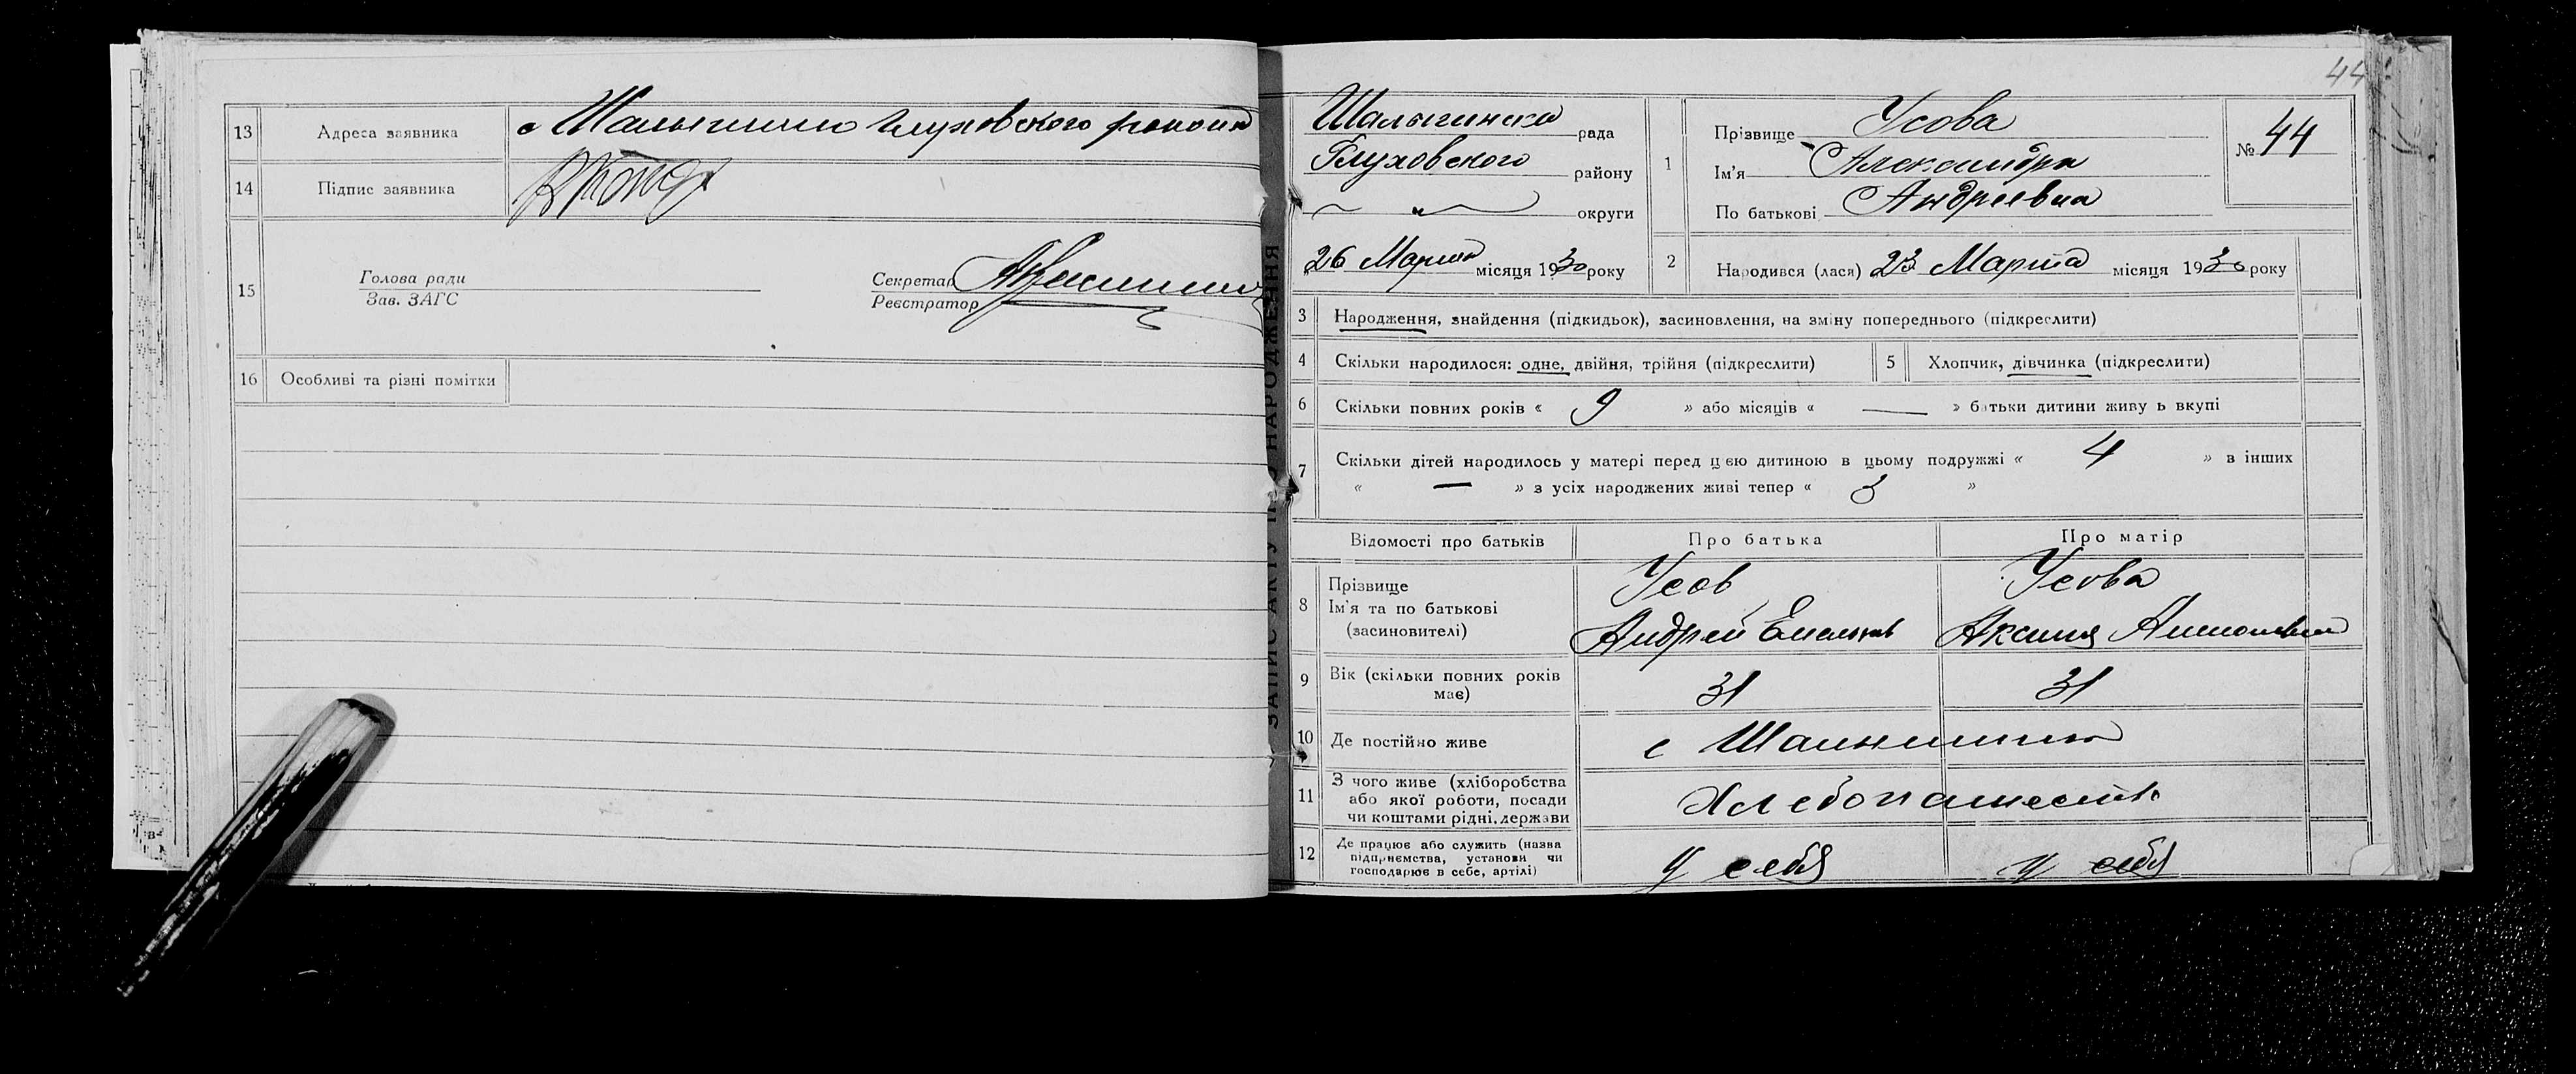 13 Адреса заявника с Шалыгино Глуховского района
14 Підпис заявника
15 Голова ради
Зав. ЗАГС
Секретар
Реєстратор
16 Особливі та різні помітки
ЗАПИС АКТУ ПРО НАРОДЖЕННЯ
44
Шалыгинска рада
Глуховского району
" округи
26 Марта місяця 1930 року
1 Прізвище Усова
Ім'я Александра
По батькові Андреевна
№ 44
2 Народився (лася) 23 Марта місяця 1930 року
3 Народження, знайдення (підкидьок), засиновлення, на зміну попереднього (підкреслити)
4 Скільки народилося: одне, двійня, трійня (підкреслити) 5 Хлопчик, дівчинка (підкреслити)
6 Скільки повних років « 9 » або місяців « — » батьки дитини живу ь вкупі
7 Скільки дітей народилось у матері перед цією дитиною в цьому подружжі « 4 » в інших
« — » з усіх народжених живі тепер « 3 »
Відомості про батьків Про батька Про матір
8 Прізвище Усов Усова
Ім'я та по батькові
(засиновителі) Андрей Аксиния
9 Вік (скільки повних років має) 31 31
10 Де постійно живе с Шалыгино
11 З чого живе (хліборобства
або якої роботи, посади
чи коштами рідні, держави Хлебопашеств
12 Де працює або служить (назва
підприємства, установи чи
господарює в себе, артілі) у себя у себя